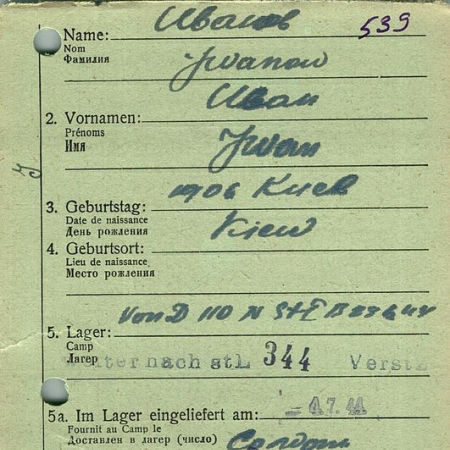 Иванов
539
Name:
Nom
Фамилия
Jwanow
Иван
2. Vornamen:
Prénoms
Имя
Jwan
1906 Киев
3. Geburtstag:
Date de naissance
День рождения
Kiew
4. Geburtsort:
Lieu de naissance
Место рождения
Von D 110 N Stl
5. Lager:
Camp
Лагерь
Weiter nach stl 344
5a. Im Lager eingeliefert am:
4.7.44
Fournit au Camp le
Доставлен в лагерь (число)